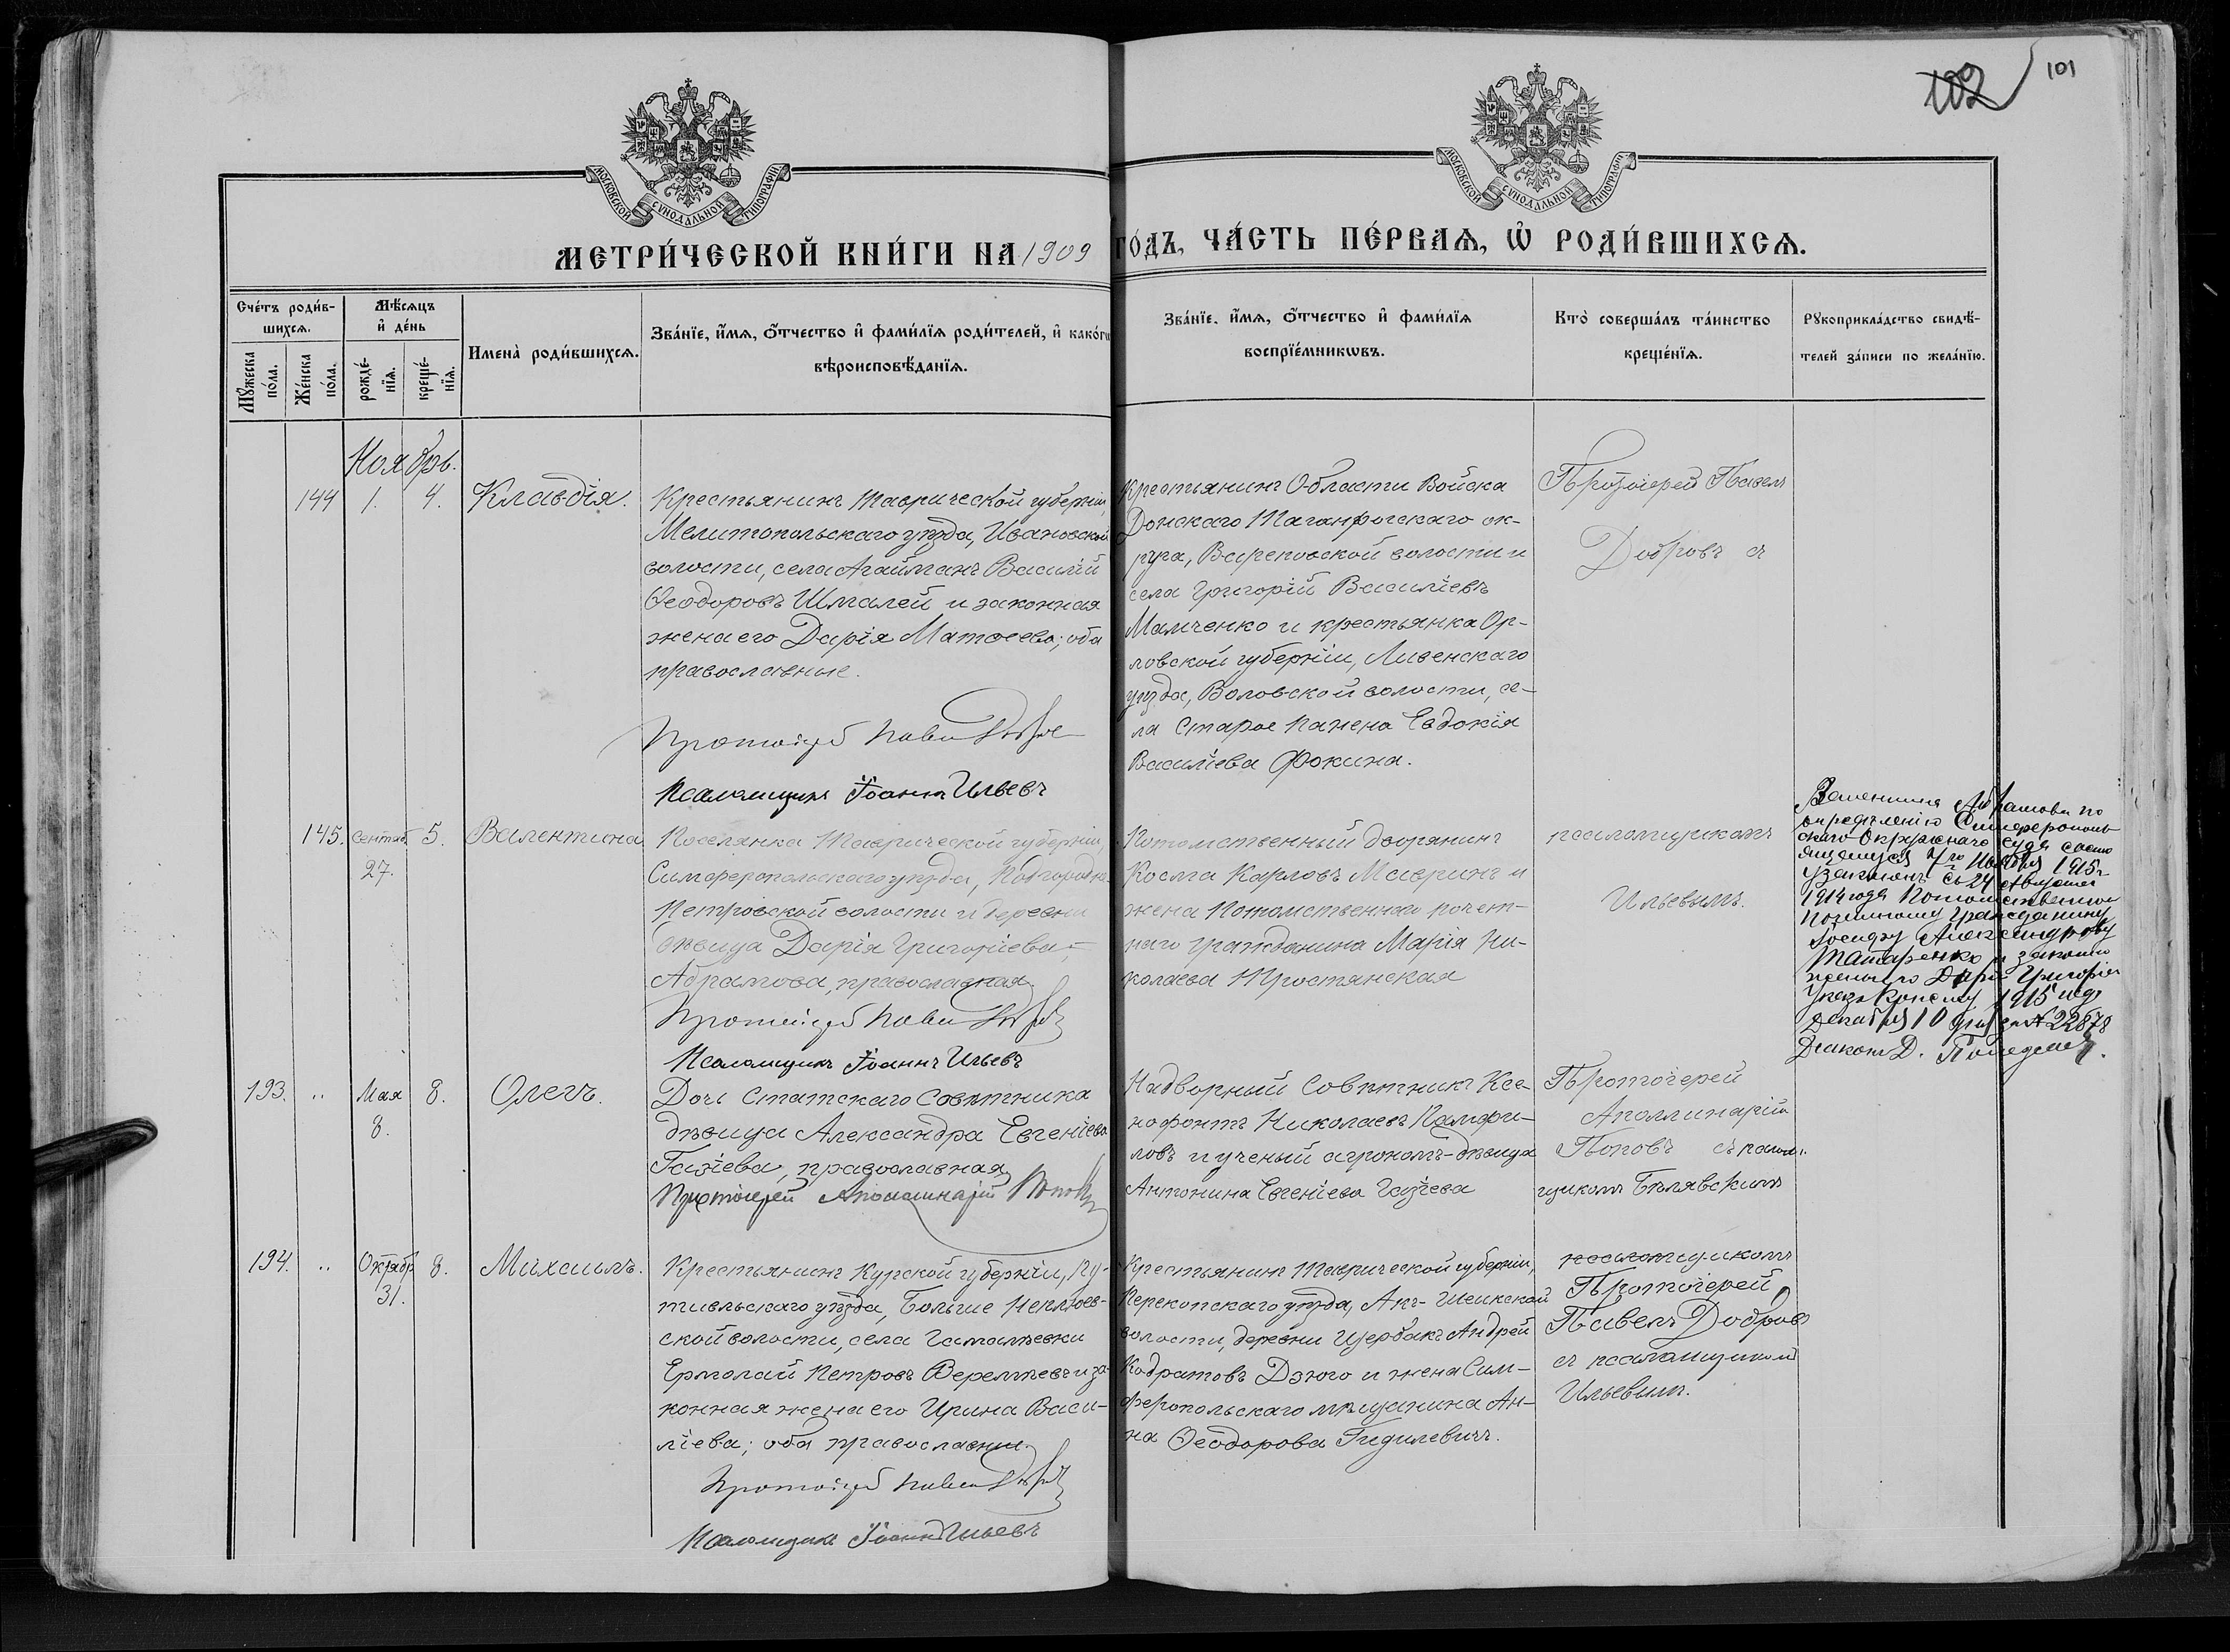 102 101
МОСКОВСКОЙ СѴНОДАЛЬНОЙ ТИПОГРАФІИ
МОСКОВСКОЙ СѴНОДАЛЬНОЙ ТИПОГРАФІИ
МЕТРИ́ЧЕСКОЙ КНИ́ГИ НА 1909 ГО́ДЪ, ЧА́СТЬ ПЕ́РВАѦ, Ѡ҆ РОДИ́ВШИХСѦ.
Сче́тъ роди́в-
шихсѧ.
Мꙋ́жеска по́ла.
Же́нска по́ла.
Мѣ́сѧцъ
и҆ де́нь
рожде́-
нїѧ.
креще́-
нїѧ.
Имена̀ роди́вшихсѧ.
Зва́нїе, и҆́мѧ, ѻ҆́тчество и҆ фами́лїѧ роди́телей, и҆ како́гѡ
вѣроисповѣ́данїѧ.
Зва́нїе, и҆́мѧ, ѻ҆́тчество и҆ фами́лїѧ
воспрїе́мникѡвъ.
Кто̀ соверша́лъ та́инство
креще́нїѧ.
Рꙋкоприкла́дство свидѣ́-
телей за́писи по жела́нїю.
Ноябрь.
144 1. 4. Клавдія.
Крестьянинъ Таврической губерніи,
Мелитопольскаго уѣзда, Ивановской
волости, села Агайманъ Василій
Ѳеодоровъ Шмалей и законная
жена его Дарія Матѳеева; оба
православные.
Протоіерей Павелъ Добровъ
Псаломщикъ Іоаннъ Ильевъ
Крестьянинъ Области Войска
Донскаго Таганрогскаго ок-
руга, Вареновской волости и
села Григорій Василіевъ
Мамченко и крестьянка Ор-
ловской губерніи, Ливенскаго
уѣзда, Воловской волости, се-
ла Старое Панено Евдокія
Василіева Фокина.
Протоіерей Павелъ
Добровъ съ
145. Сентяб. 5. Валентина
27.
Поселянка Таврической губерніи,
Симферопольскаго уѣзда,
Петровской волости и деревни
дѣвица Дарія Григоріева
Абрамова, православная.
Протоіерей Павелъ Добровъ
Псаломщикъ Іоаннъ Ильевъ
Потомственный дворянинъ
Косма Карловъ Мавринъ и
жена Потомственнаго почет-
наго гражданина Марія Ни-
колаева Тростянская
псаломщикомъ
Ильевымъ.
Валентина Абрамова по
опредѣленію Симферополь-
скаго Окружнаго Суда состо
явшемуся 7го Ноября 1915 г
узаконена съ 24 Августа
1914 года Потомственному
Почетному Гражданину
Александрову
Татаренко и законной
жены его Даріи Григоріев
Указъ Консис. 1915 года
Декабря 10 дня за № 22878
Діаконъ Д.
193. " Мая 8. Олегъ.
8.
Дочь Статскаго Совѣтника
дѣвица Александра Евгеніева
Газіева, православная
Протоіерей Аполлинарій Поповъ
Надворный Совѣтникъ Ксе-
нофонтъ Николаевъ Памфи-
ловъ и ученый агрономъ-дѣвица
Антонина Евгеніева Газіева
Протоіерей
Аполлинарій
Поповъ съ псалом-
щикомъ Бѣлявскимъ
194. " Октябр 8. Михаилъ.
31.
Крестьянинъ Курской губерніи, Пу-
тивльскаго уѣзда, Больше Неплюев-
ской волости, села Гамалѣевки
Ермолай Петровъ Веремѣевъ и за-
конная жена его Ирина Васи-
ліева; оба православные.
Протоіерей Павелъ Добровъ
Псаломщикъ Іоаннъ Ильевъ
Крестьянинъ Таврической губерніи,
Перекопскаго уѣзда, Акъ-Шеикской
волости, деревни Щербакъ Андрей
Кодратовъ Дзюго и жена Сим-
феропольскаго мѣщанина Ан-
на Ѳеодорова Гидилевичъ.
псаломщикомъ
Протоіерей
Павелъ Добровъ
съ псаломщикомъ
Ильевымъ.